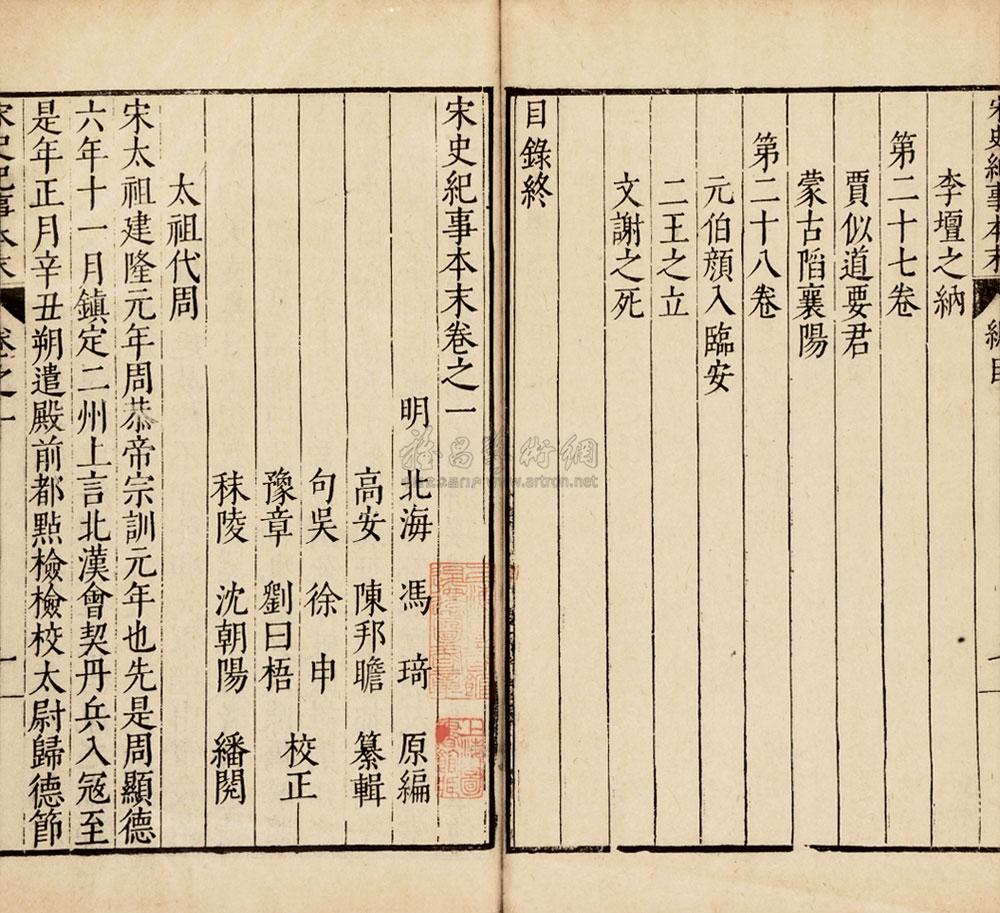 宋史紀事本末 總目
李壇之納
第二十七卷
賈似道要君
蒙古䧟襄陽
第二十八卷
元伯顔入臨安
二王之立
文謝之死
目錄終
宋史紀事本末卷之一
明 北海 馮琦 原編
高安 陳邦瞻 纂輯
句吳 徐申
豫章 劉曰梧 校正
秣陵 沈朝陽 繙閱
太祖代周
宋太祖建隆元年周恭帝宗訓元年也先是周顯德
六年十一月鎮定二州上言北漢會契丹兵入冦至
是年正月辛丑朔遣殿前都㸃檢檢校太尉歸德節
宋史紀事本末 卷之一 一
雅昌藝術網
www.artron.net